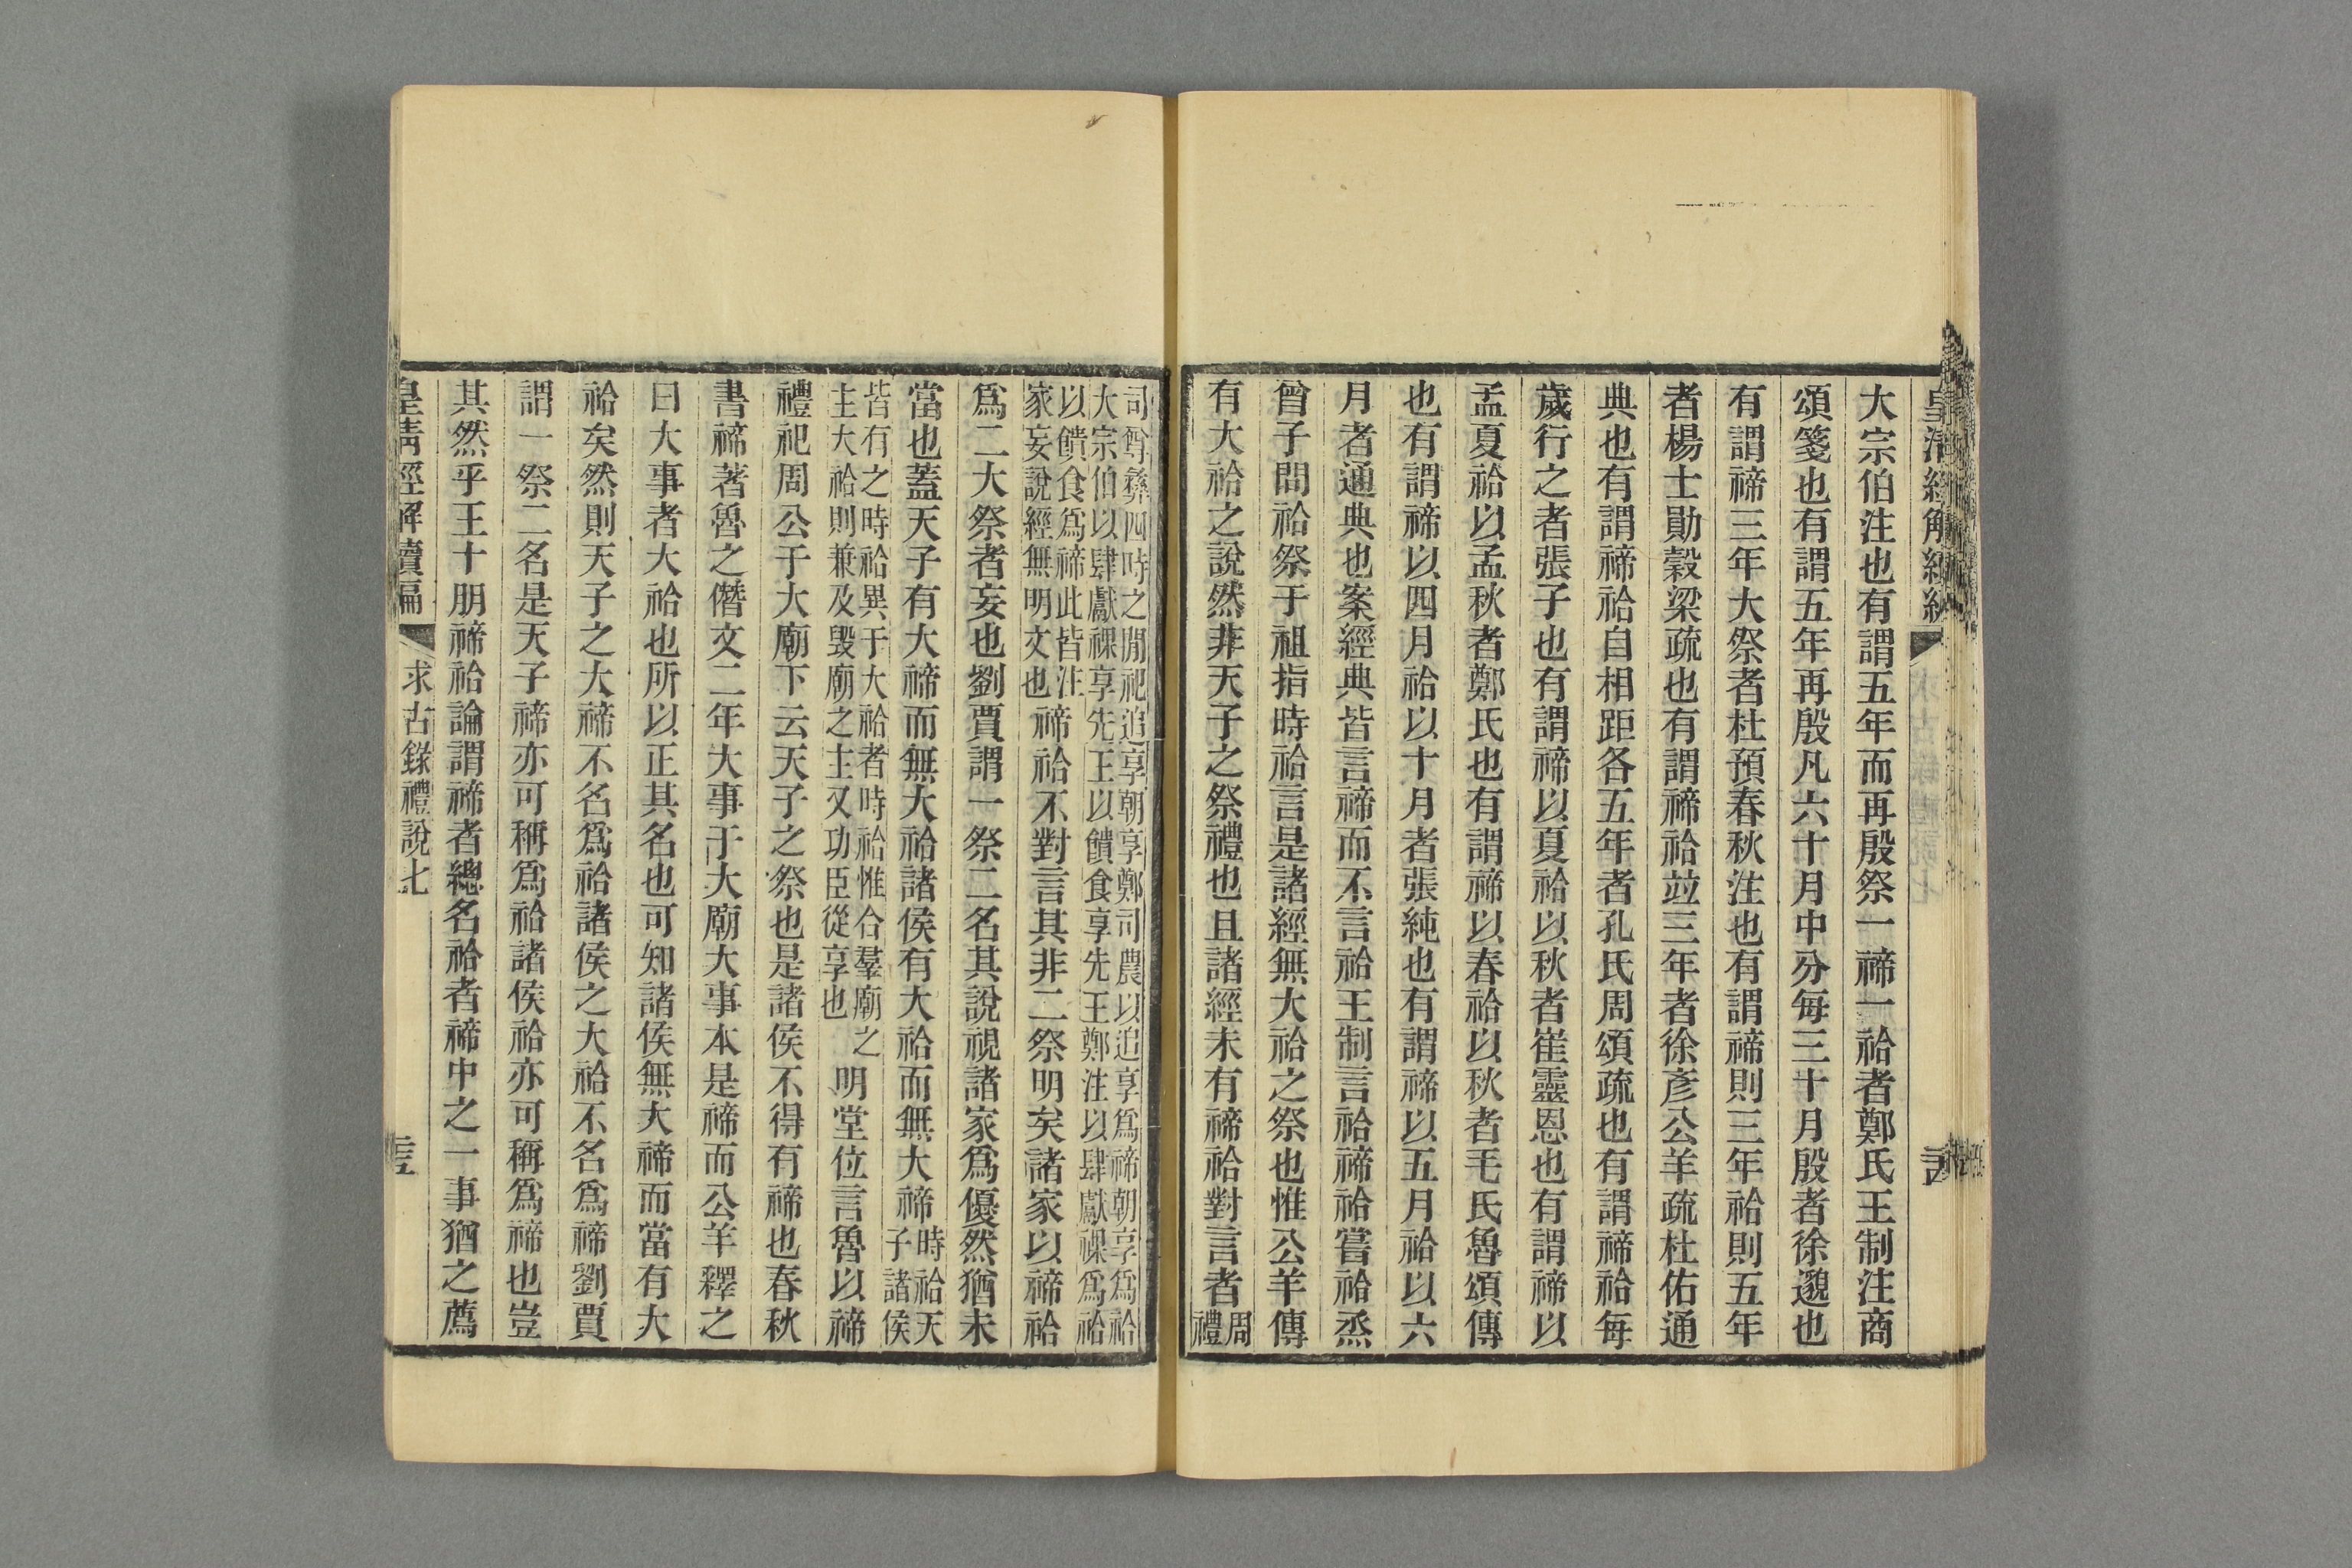 大宗伯注也有謂五年而再殷祭一禘一祫者鄭氏王制注商
頌箋也有謂五年再殷凡六十月中分每三十月殷者徐邈也
有謂禘三年大祭者杜預春秋注也有謂禘則三年祫則五年
者楊士勛穀梁疏也有謂禘祫竝三年者徐彥公羊疏杜佑通
典也有謂禘祫自相距各五年者孔氏周頌疏也有謂禘祫每
歲行之者張子也有謂禘以夏祫以秋者崔靈恩也有謂禘以
孟夏祫以孟秋者鄭氏也有謂禘以春祫以秋者毛氏魯頌傳
也有謂禘以四月祫以十月者張純也有謂禘以五月祫以六
月者通典也案經典皆言禘而不言祫王制言祫禘祫嘗祫烝
曾子問祫祭于祖指時祫言是諸經無大祫之祭也惟公羊傳
有大祫之說然非天子之祭禮也且諸經未有禘祫對言者周
禮
司尊彝四時之閒祀追享朝享鄭司農以追享爲禘朝享爲祫
大宗伯以肆獻祼享先王以饋食享先王鄭注以肆獻祼爲祫
以饋食爲禘此皆注
家妄說經無明文也
禘祫不對言其非二祭明矣諸家以禘祫
爲二大祭者妄也劉賈謂一祭二名其說視諸家爲優然猶未
當也蓋天子有大禘而無大祫諸侯有大祫而無大禘時祫天
子諸侯
皆有之時祫異于大祫者時祫惟合羣廟之
主大祫則兼及毀廟之主又功臣從享也
明堂位言魯以禘
禮祀周公于大廟下云天子之祭也是諸侯不得有禘也春秋
書禘著魯之僭文二年大事于大廟大事本是禘而公羊釋之
曰大事者大祫也所以正其名也可知諸侯無大禘而當有大
祫矣然則天子之大禘不名爲祫諸侯之大祫不名爲禘劉賈
謂一祭二名是天子禘亦可稱爲祫諸侯祫亦可稱爲禘也豈
其然乎王十朋禘祫論謂禘者總名祫者禘中之一事猶之薦
皇清經解續編 求古錄禮說七